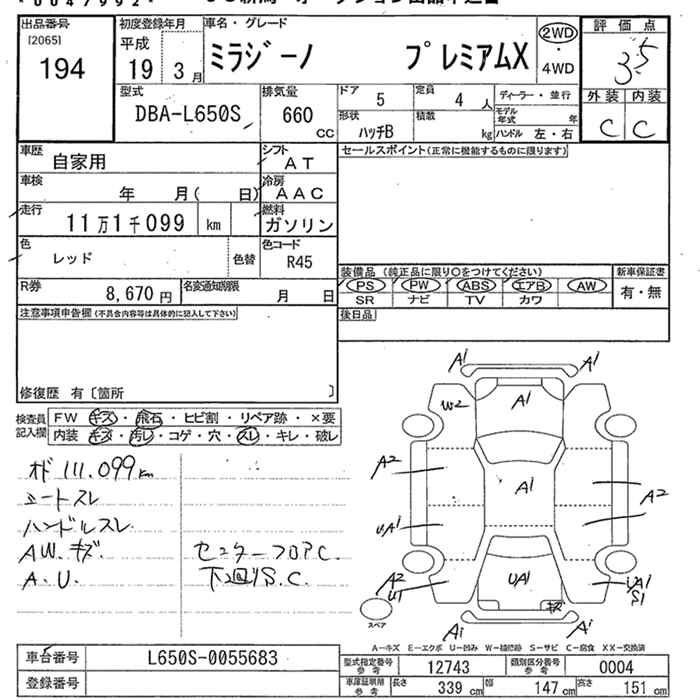 出品番号 [2065] 194
初度登録年月 平成 19年 3月
車名・グレード ミラジーノ プレミアムX
2WD・4WD
評価点 3.5
外装 C 内装 C
型式 DBA-L650S
排気量 660 CC
ドア 5
定員 4 人
ディーラー・並行
形状 ハッチB
積載 kg
モデル年式 年
ハンドル 左・右
車歴 自家用
シフト AT
セールスポイント(正常に機能するものに限ります)
車検 年 月( 日)
冷房 AAC
走行 11万1千099 km
燃料 ガソリン
色 レッド 色替
色コード R45
R券 8,670円
名変通知期限 月 日
装備品(純正品に限り○をつけてください)
PS PW ABS エアB AW
SR ナビ TV カワ
新車保証書 有・無
後日品
注意事項申告欄(不具合内容等は具体的に記入して下さい)
修復歴 有〔箇所 〕
検査員記入欄
FW キズ・飛石・ヒビ割・リペア跡・×要
内装 キズ・汚レ・コゲ・穴・スレ・キレ・破レ
オド 111.099km
シートスレ
ハンドルスレ
AW.キズ
A.U.
センターフロアC.
下回りS.C.
A1 A1
W2 A1
A2 A1 A2
UA1
A2 U1 UA1 キズ UA1 S1
A1 A1
スペア
A-キズ E-エクボ U-凹み W-補修跡 S-サビ C-腐食 XX-交換済
車台番号 L650S-0055683
登録番号
型式指定番号 参考 12743
類別区分番号 参考 0004
車庫証明用 参考 長さ 339 cm 幅 147 cm 高さ 151 cm